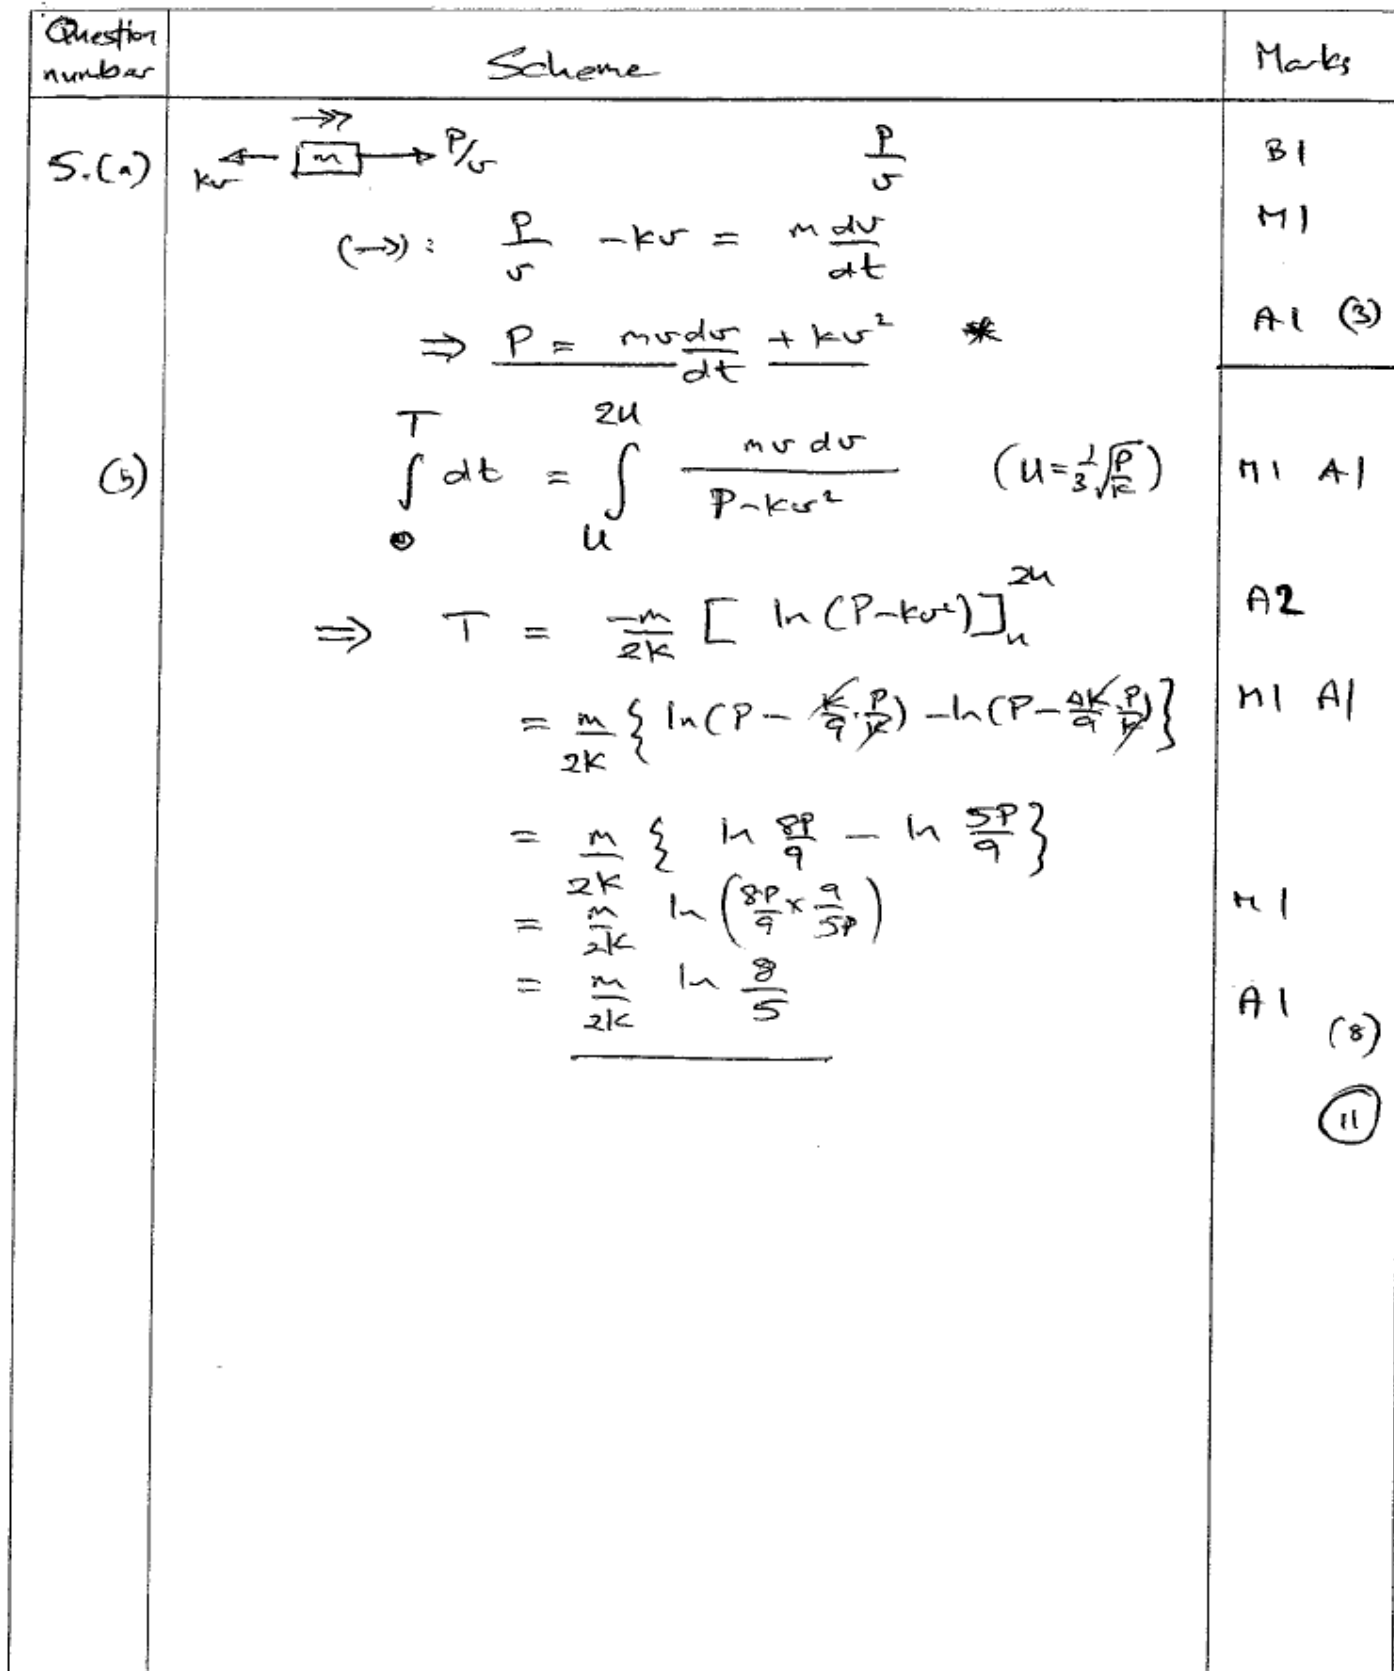 Question number Scheme Marks
5.(a) kv m P/v P/v B1
(→): P/v - kv = m dv/dt M1
⇒ P = mv dv/dt + kv² * A1 (3)
(b) ∫₀ᵀ dt = ∫ᵤ²ᵘ mv dv / (P - kv²) (u = 1/3 √(P/k)) M1 A1
⇒ T = -m/2k [ ln (P - kv²) ]ᵤ²ᵘ A2
= m/2k { ln(P - k/9 · P/k) - ln(P - 4k/9 · P/k) } M1 A1
= m/2k { ln 8P/9 - ln 5P/9 }
= m/2k ln (8P/9 × 9/5P) M1
= m/2k ln 8/5 A1 (8)
11